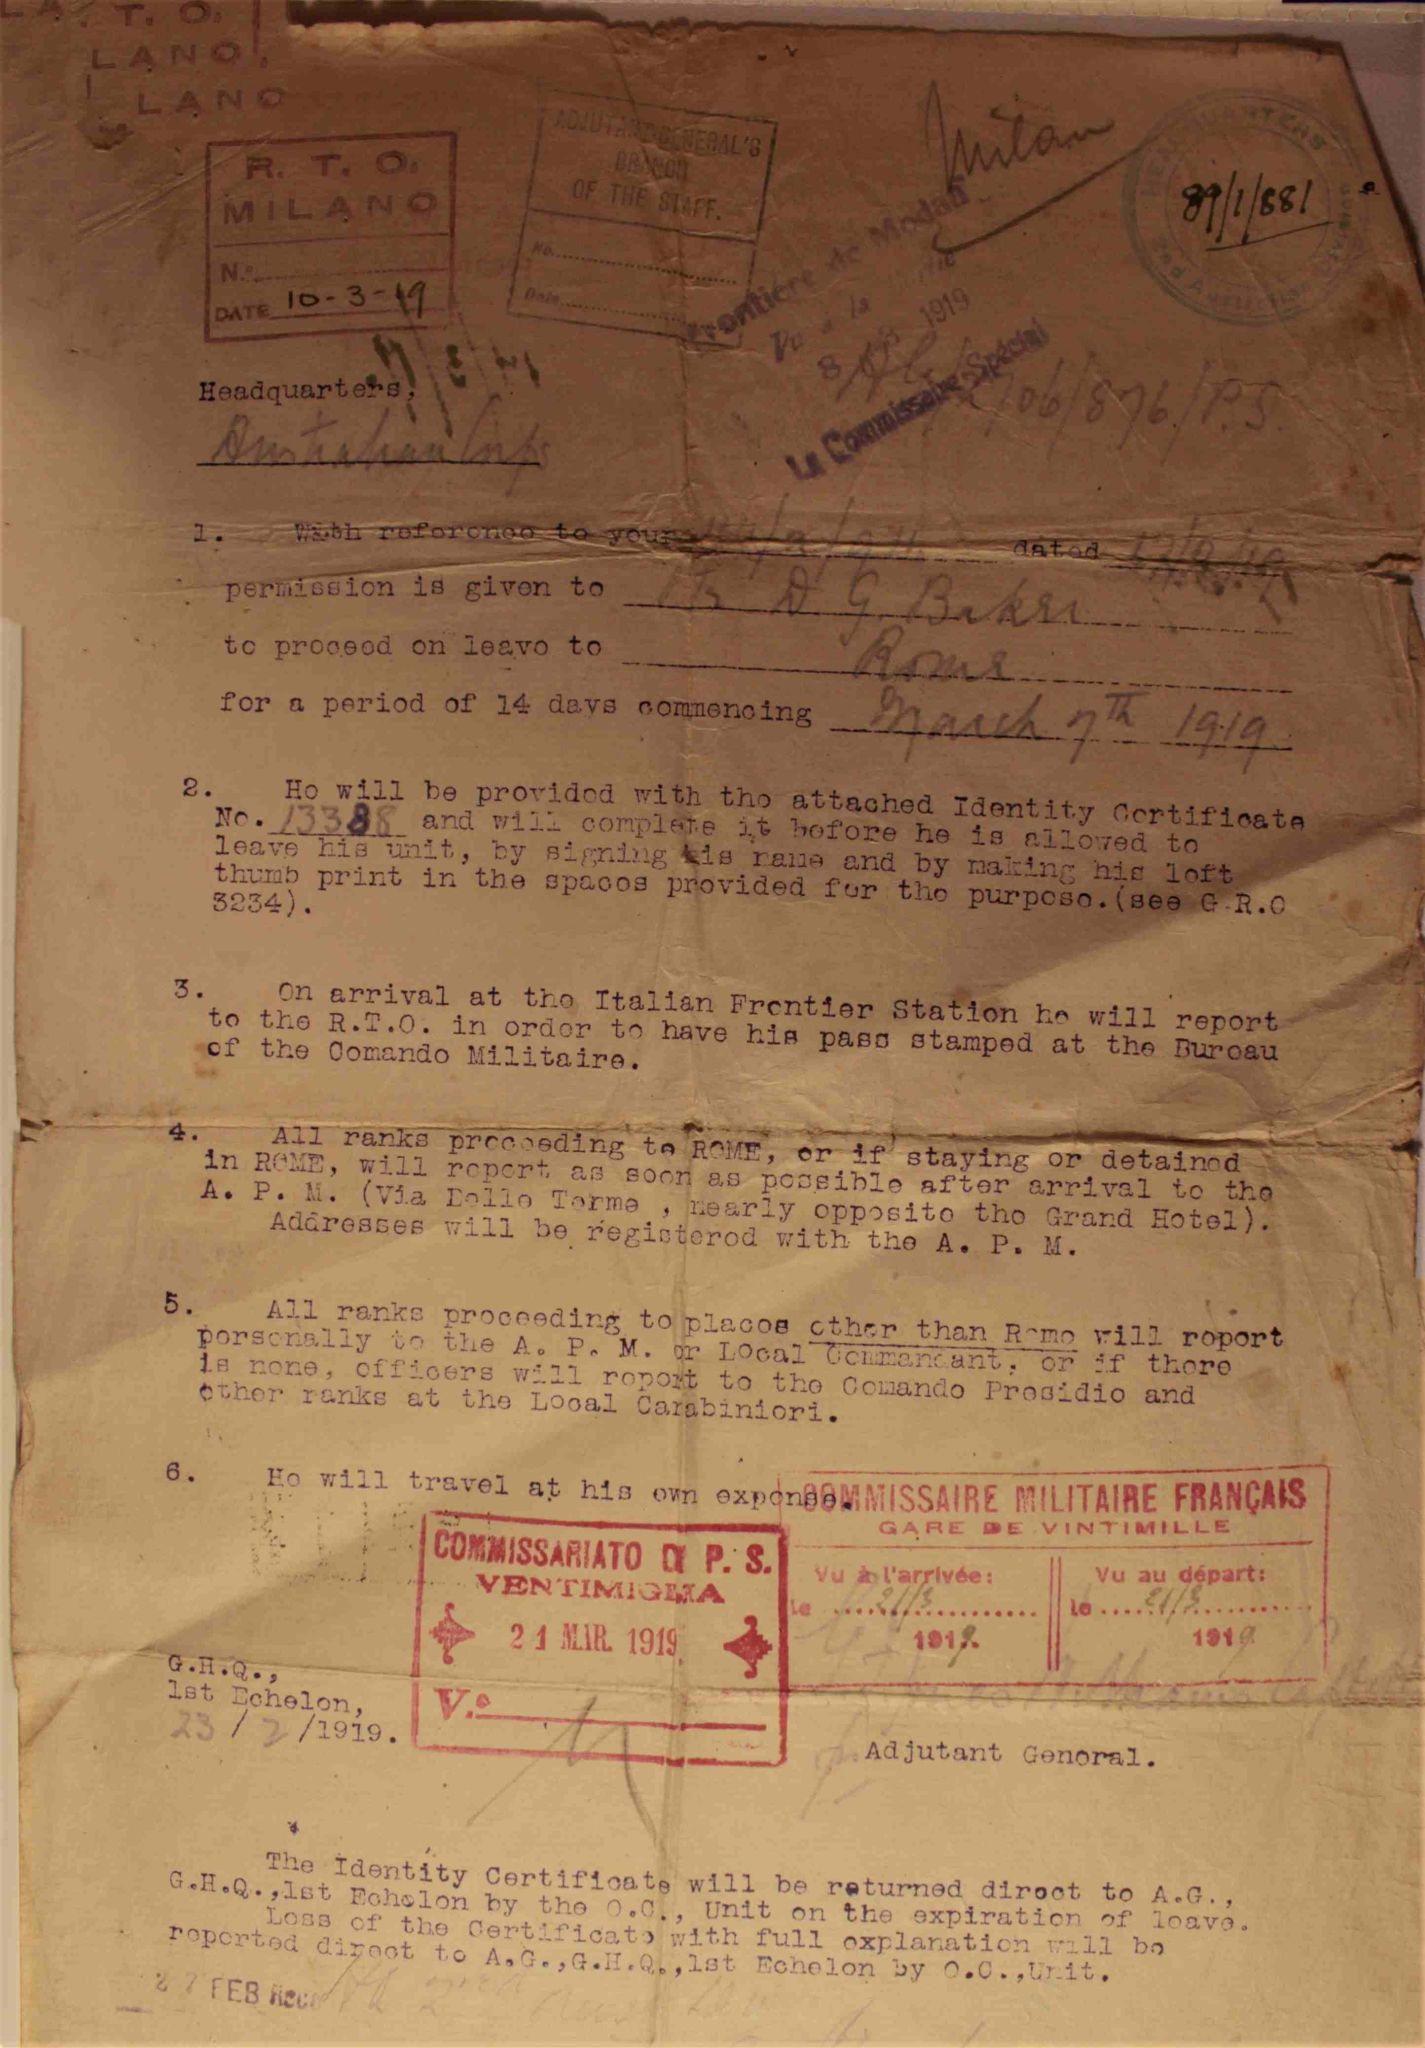 LA. T. O.
LANO.
LANO
R. T. O.
MILANO
N.o
DATE 10-3-19
ADJUTANT GENERAL'S
BRANCH
OF THE STAFF.
No.
Date
Milan
HEADQUARTERS
89/1/881
Frontière de Modane
Vu à la
8 1919
Le Commissaire Spécial
106/876/P.S.
Headquarters,
Australian Corps
1. With reference to your dated
permission is given to D G Baker
to proceed on leave to Rome
for a period of 14 days commencing March 7th 1919
2. He will be provided with the attached Identity Certificate
No. 13388 and will complete it before he is allowed to
leave his unit, by signing his name and by making his left
thumb print in the spaces provided for the purpose.(see G.R.O
3234).
3. On arrival at the Italian Frontier Station he will report
to the R.T.O. in order to have his pass stamped at the Bureau
of the Comando Militaire.
4. All ranks proceeding to ROME, or if staying or detained
in ROME, will report as soon as possible after arrival to the
A. P. M. (Via Delle Terme , nearly opposite the Grand Hotel).
Addresses will be registered with the A. P. M.
5. All ranks proceeding to places other than Rome will report
personally to the A. P. M. or Local Commandant, or if there
is none, officers will report to the Comando Presidio and
other ranks at the Local Carabinieri.
6. He will travel at his own expense.
COMMISSAIRE MILITAIRE FRANÇAIS
GARE DE VINTIMILLE
Vu à l'arrivée: Vu au départ:
le 21/3 le 21/3
1919. 1919
COMMISSARIATO DI P. S.
VENTIMIGLIA
21 MAR. 1919
V.o
G.H.Q.,
1st Echelon,
23 / 2 /1919.
Adjutant General.
The Identity Certificate will be returned direct to A.G.,
G.H.Q.,1st Echelon by the O.C., Unit on the expiration of leave.
Loss of the Certificate with full explanation will be
reported direct to A.G.,G.H.Q.,1st Echelon by O.C.,Unit.
27 FEB Recd